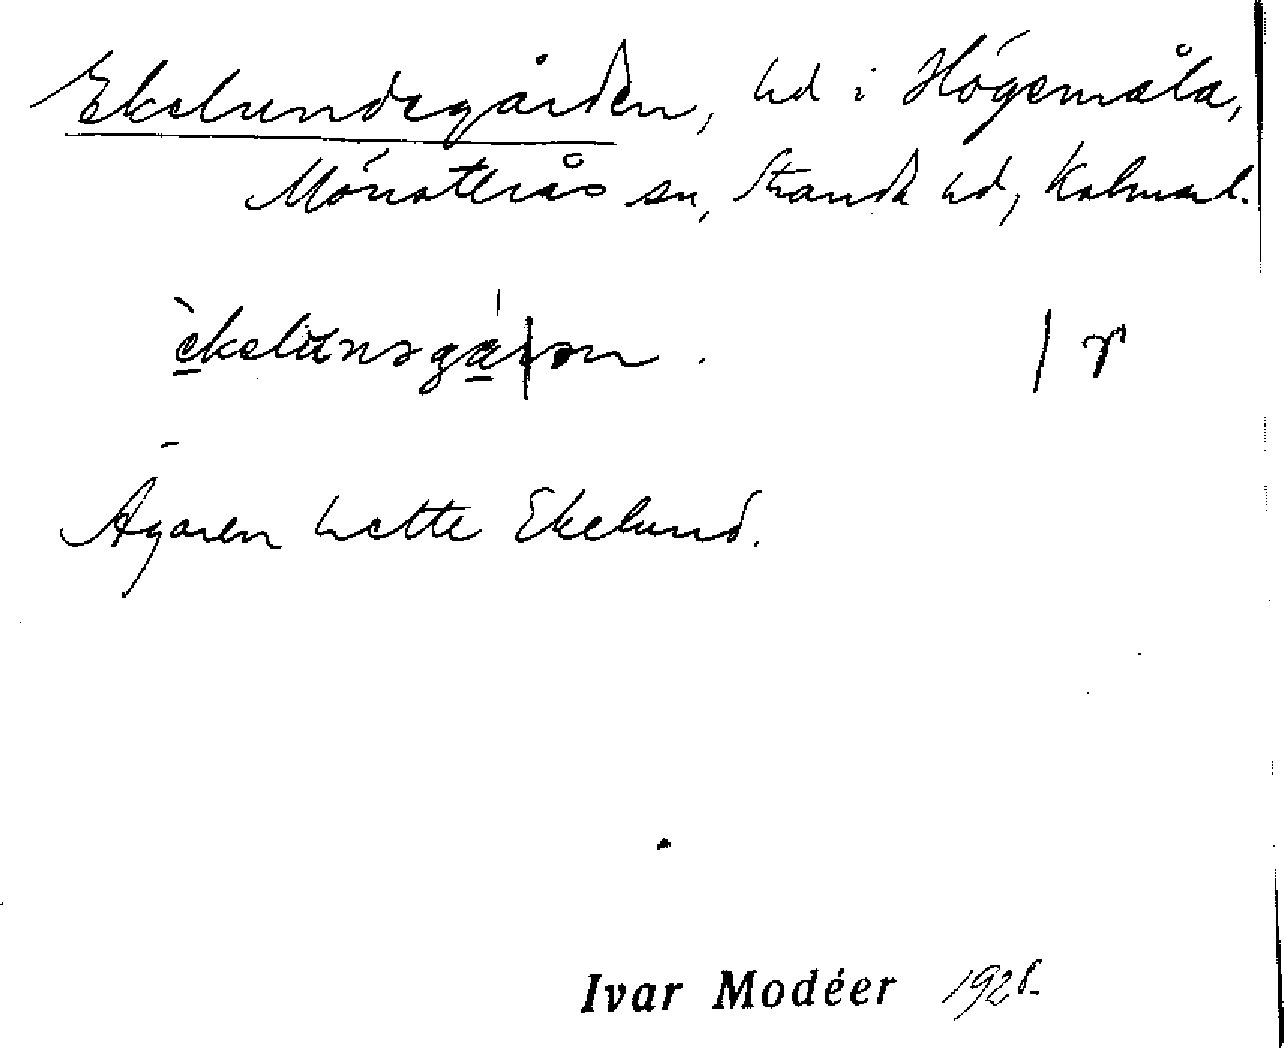 Ekelundsgården, hd i Högemåla,
Mönsterås sn, Stranda hd, Kalmar l.
Ägaren hette Ekelund.
Ivar Modéer